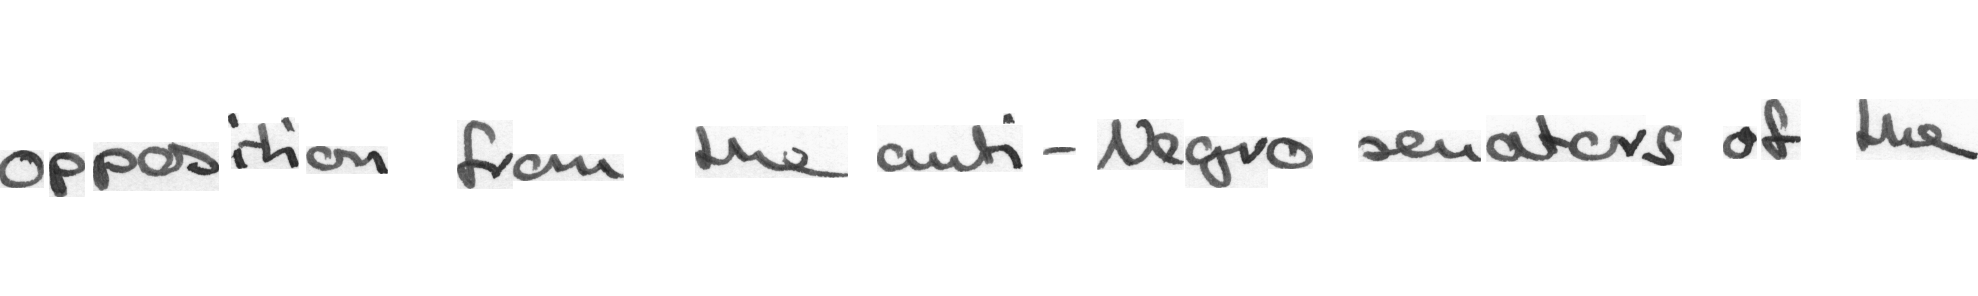 opposition from the anti-Negro senators of the